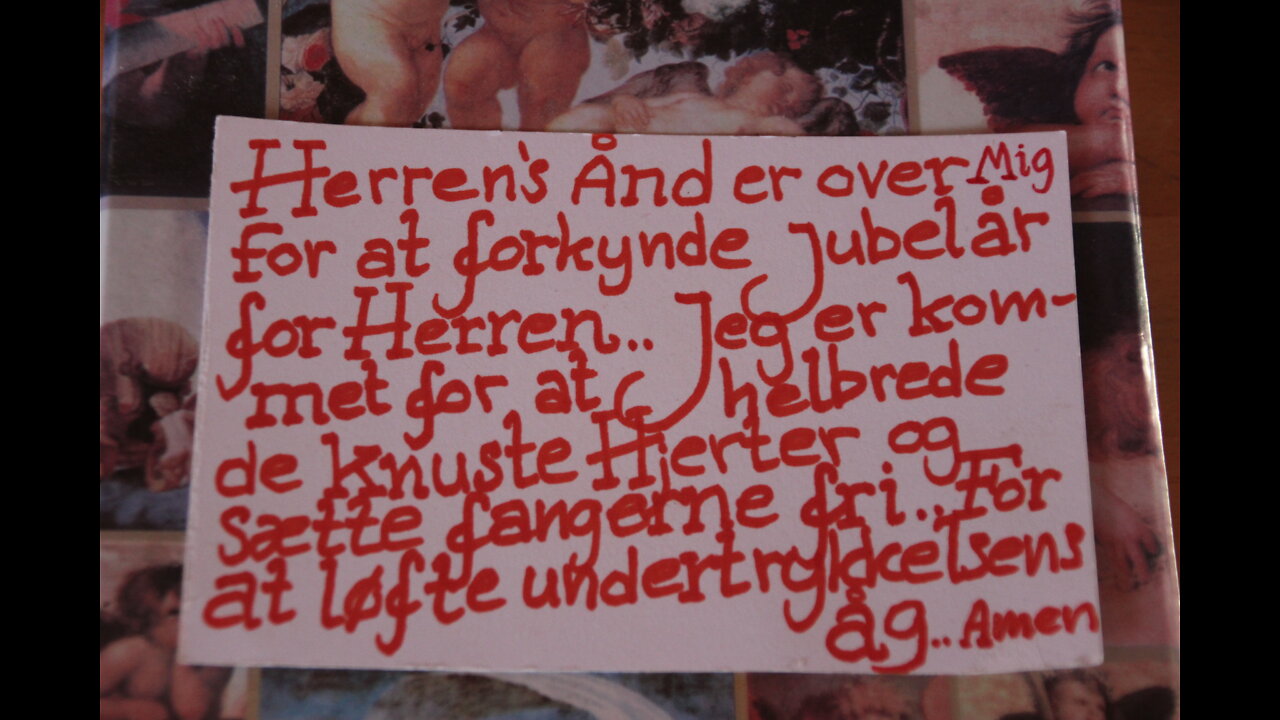 Herren's Ånd er over Mig
for at forkynde Jubelår
for Herren.. Jeg er kom-
met for at helbrede
de knuste Hjerter og
sætte fangerne fri.. For
at løfte undertrykkelsens
åg.. Amen